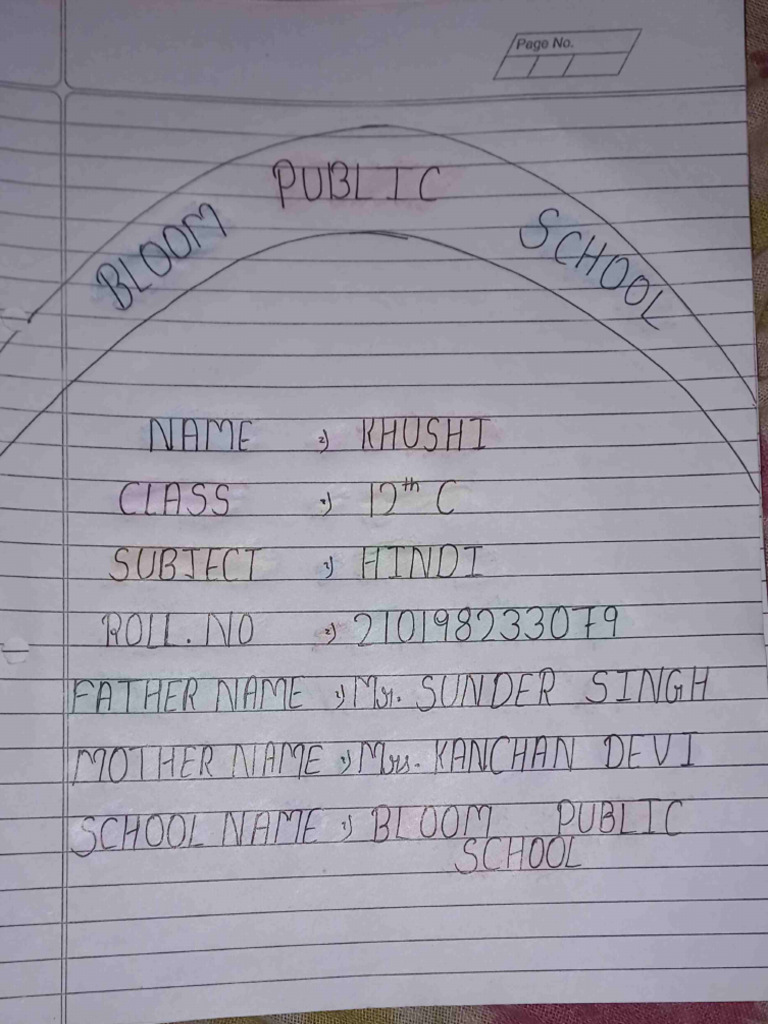 Page No.
BLOOM PUBLIC SCHOOL
NAME :) KHUSHI
CLASS :) 12th C
SUBJECT :) HINDI
ROLL.NO :) 210198233079
FATHER NAME :) Mr. SUNDER SINGH
MOTHER NAME :) Mrs. KANCHAN DEVI
SCHOOL NAME :) BLOOM PUBLIC
SCHOOL